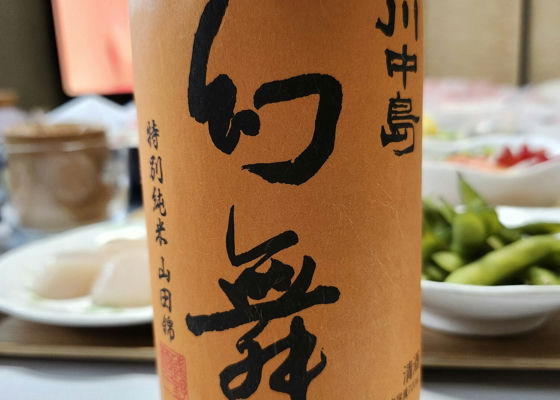 川中島
幻舞
特別純米 山田錦
清酒